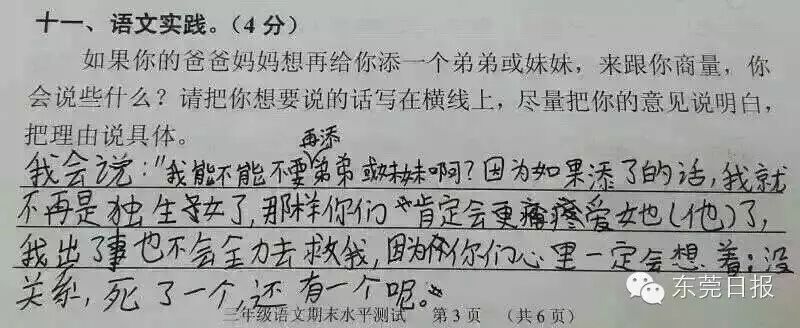 十一、语文实践。（4分）
如果你的爸爸妈妈想再给你添一个弟弟或妹妹，来跟你商量，你
会说些什么？请把你想要说的话写在横线上，尽量把你的意见说明白，
把理由说具体。
再添
我会说："我能不能不要弟弟或妹妹啊？因为如果添了的话，我就
不再是独生子女了，那样你们肯定会更痛疼爱她（他）了，
我出了事也不会全力去救我，因为你们心里一定会想着：没
关系，死了一个，还有一个呢。"
三年级语文期末水平测试 第3页 （共6页）
东莞日报